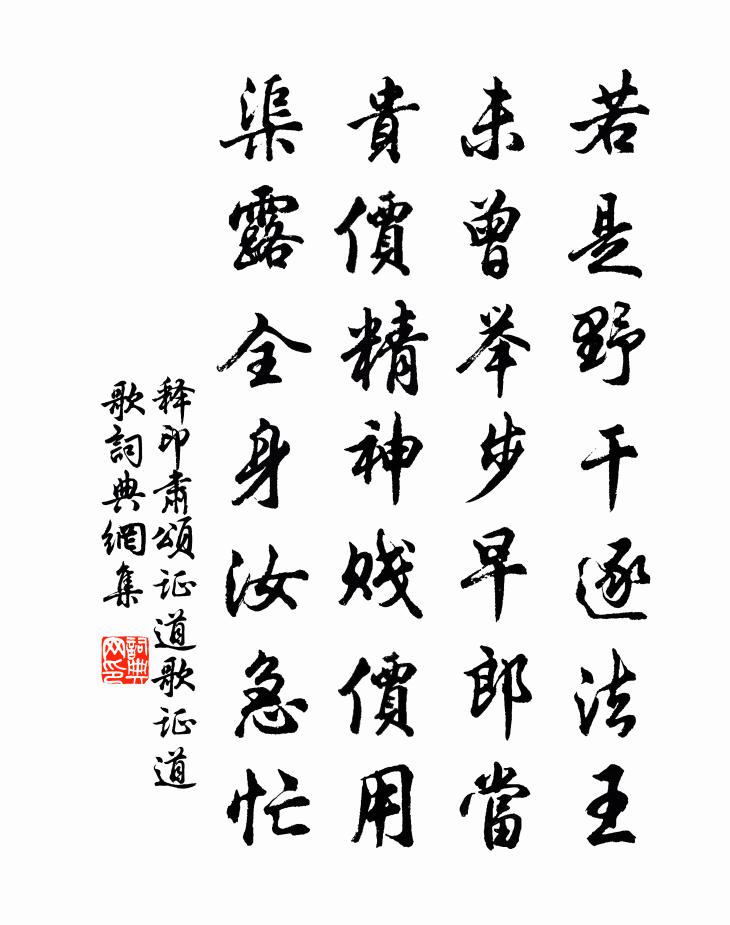 若是野干逐法王
未曾举步早郎當
貴價精神賤價用
渠露全身汝急忙
释印肃頌证道歌证道
歌詞典網集
詞典
网印